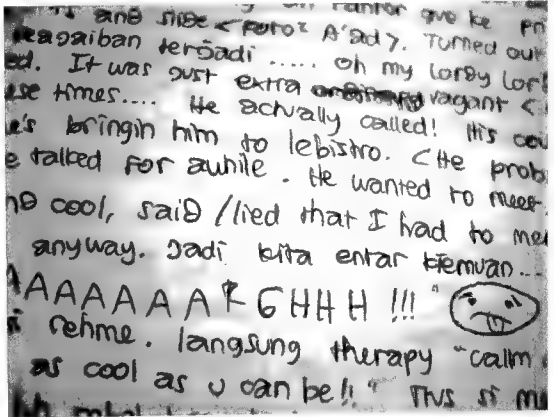 and side < foto² A'ad >. Turned out
keagaiban terjadi ..... oh my lordy lor
ed. It was just extra vagant <
se times.... He actually called! His cou
e's bringin him to lebistro. < He prob
e talked for awhile. He wanted to meet
nd cool, said / lied that I had to me
anyway. Jadi kita entar ktemuan...
AAAAAAARGHHH!!!"
rehme. langsung therapy "callm
as cool as u can be!!" Trus si m